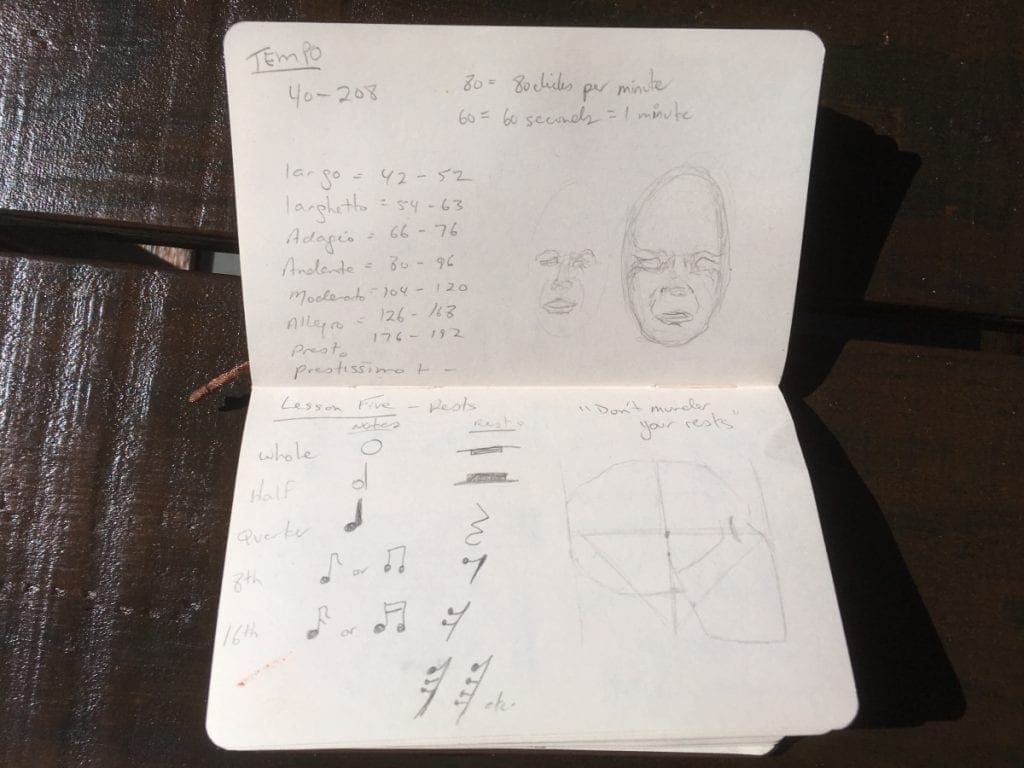 TEMPO
40-208
80 = 80 clicks per minute
60 = 60 seconds = 1 minute
largo = 42 - 52
larghetto = 54 - 63
Adagio = 66 - 76
Andante = 80 - 96
Moderato = 104 - 120
Allegro = 126 - 168
Presto 176 - 192
prestissimo + -
Lesson Five - Rests
notes rests
whole
Half
Quarter
8th or
16th or
etc.
"Don't murder
your rests"